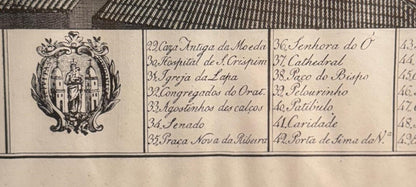 29. Caza Antiga da Moeda
30. Hospital de S. Crispim
31. Igreja da Lapa
32. Congregados do Orat.
33. Agostenhos descalços
34. Senado
35. Praça Nova da Ribeira
36. Senhora do Ó
37. Cathedral
38. Paço do Bispo
39. Pelourinho
40. Patibulo
41. Caridade
42. Porta de Sima da N.ª
43.
44.
45.
46.